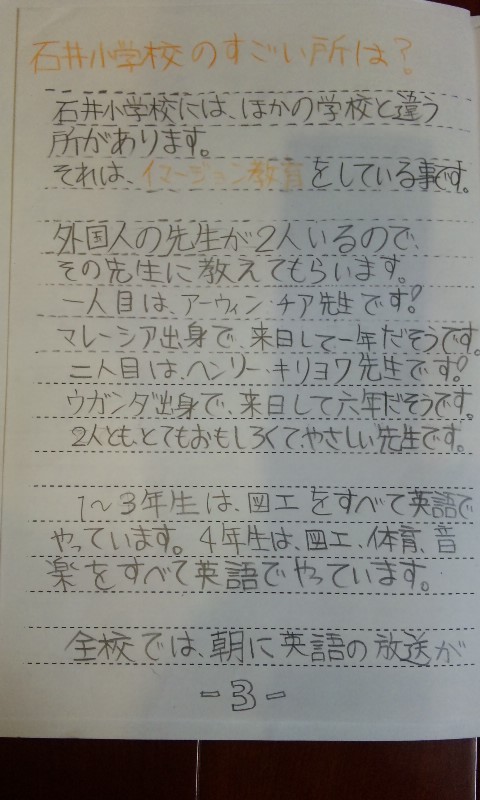 石井小学校のすごい所は?
石井小学校には、ほかの学校と違う
所があります。
それは、イマージョン教育をしている事です。
外国人の先生が2人いるので、
その先生に教えてもらいます。
一人目は、アーウィン・チア先生です!
マレーシア出身で、来日して一年だそうです。
二人目は、ヘンリー・キリョワ先生です!
ウガンダ出身で、来日して六年だそうです。
2人とも、とてもおもしろくて、やさしい先生です。
1〜3年生は、図工をすべて英語で
やっています。4年生は、図工、体育、音
楽をすべて英語でやっています。
全校では、朝に英語の放送が
-3-